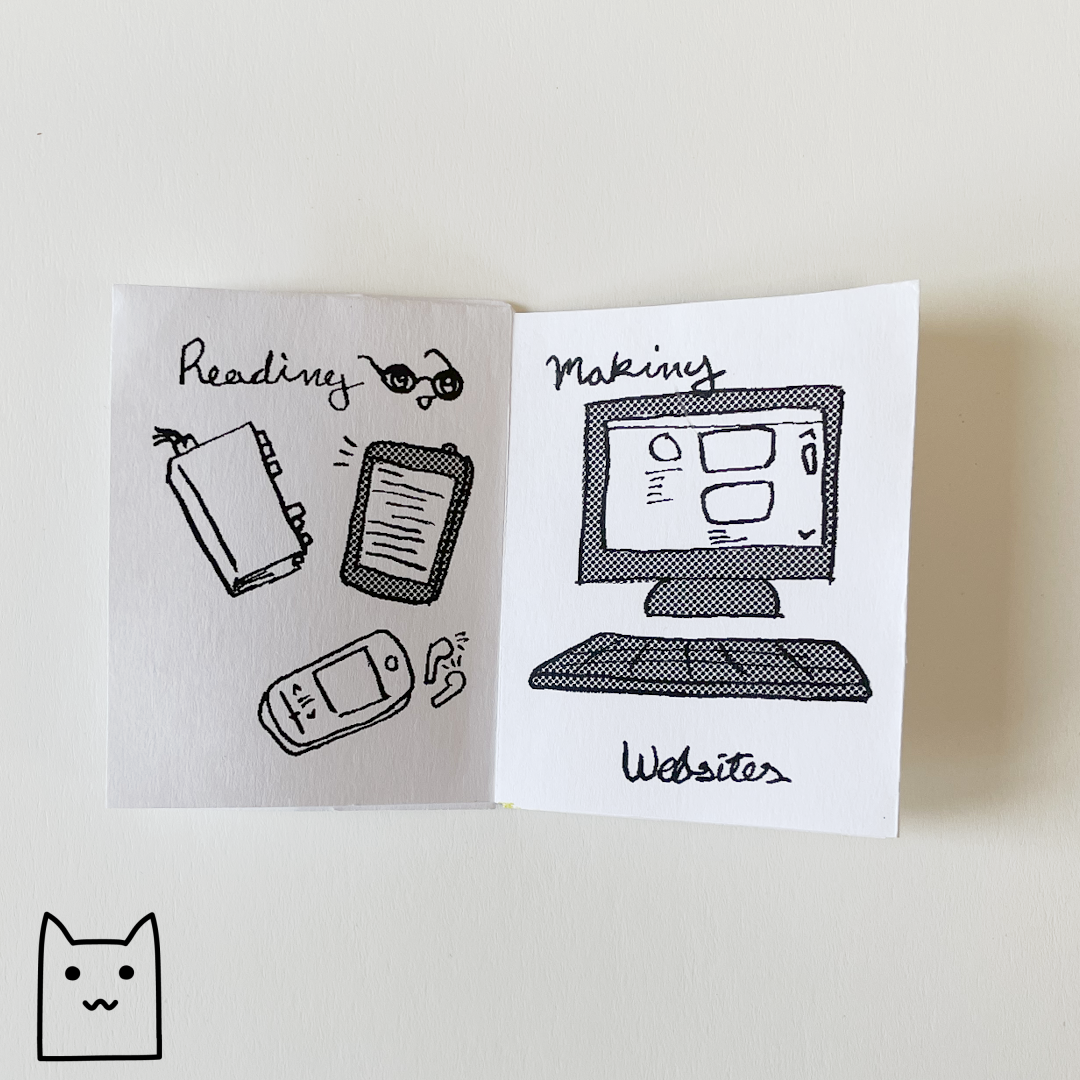 Reading
Making
Websites